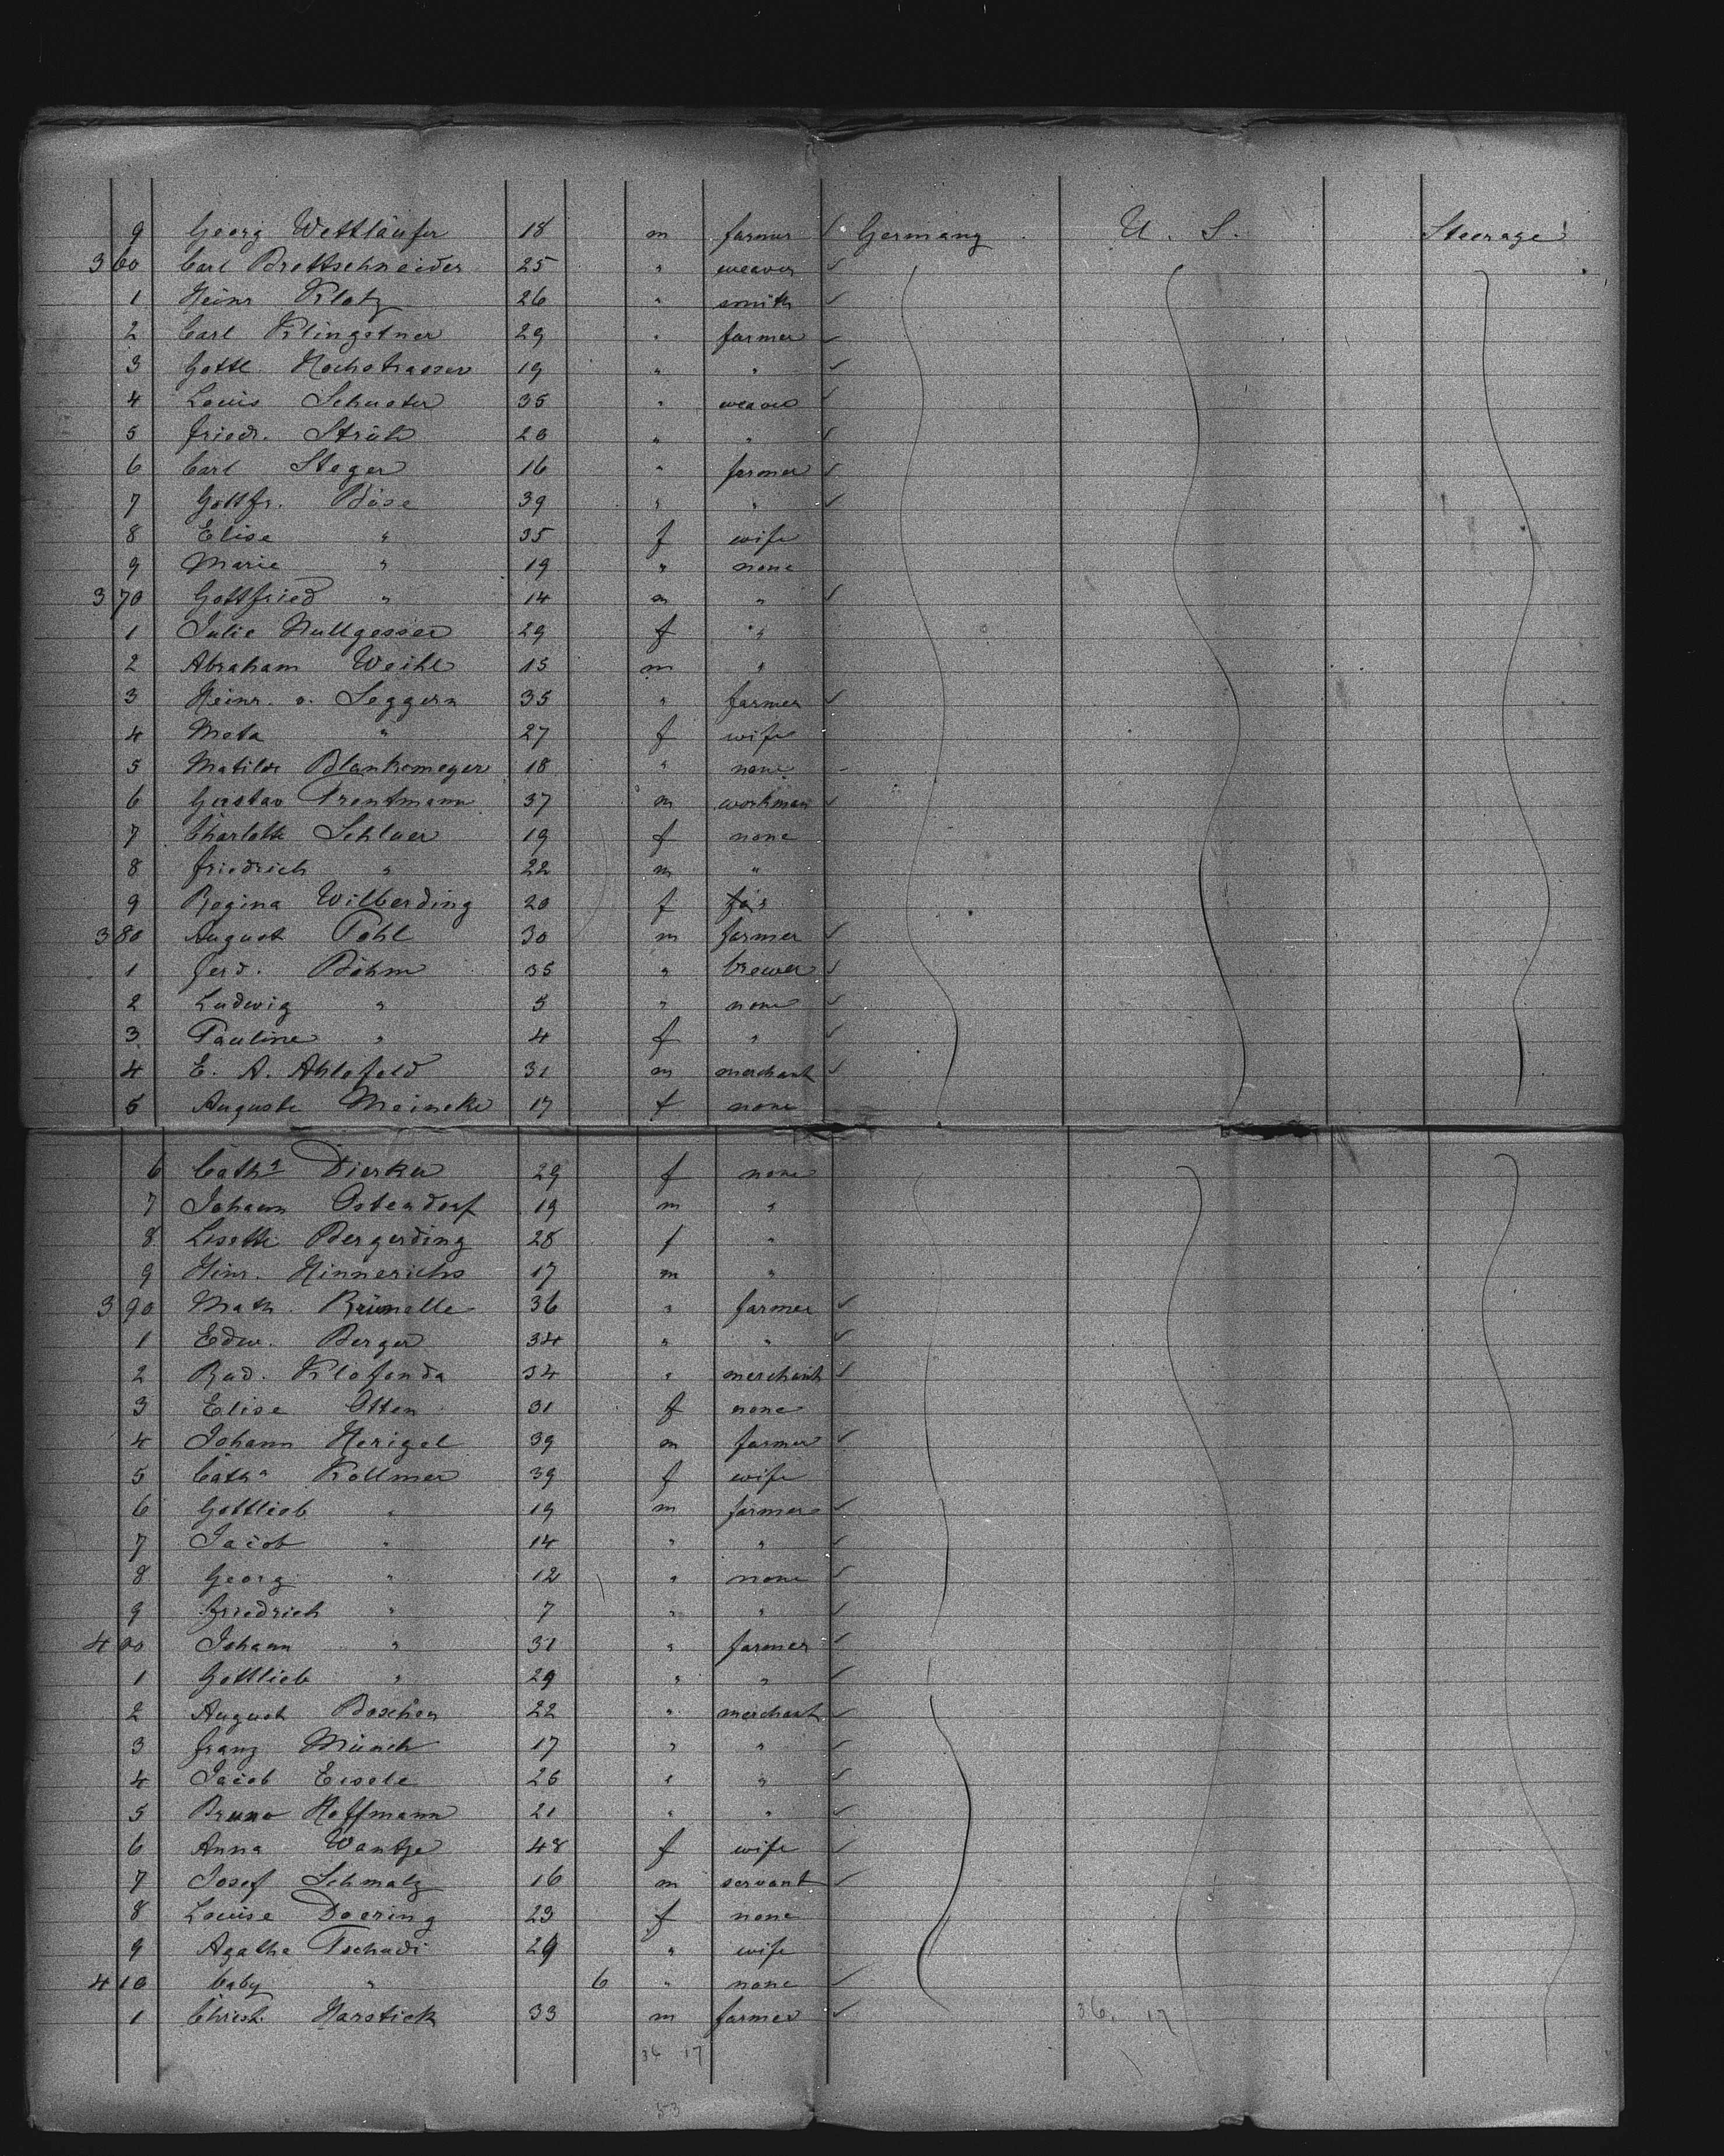 9 Georg Wettläufer 18 m farmer ✓ Germany U. S. Steerage
360 Carl Brettschneider 25 " weaver ✓
1 Heinr Klotz 26 " smith ✓
2 Carl Klingstner 29 " farmer ✓
3 Gottl. Hochstrasser 19 " " ✓
4 Louis Schuster 35 " weaver ✓
5 Friedr. Strüh 20 " " ✓
6 Carl Steger 16 " farmer ✓
7 Gottfr. Böse 39 " " ✓
8 Elise " 35 f wife
9 Marie " 19 " none
370 Gottfried " 14 m " ✓
1 Julie Nullgesser 29 f "
2 Abraham Weihl 15 m "
3 Heinr. v. Seggern 35 " farmer ✓
4 Meta " 27 f wife
5 Matilde Blankemeyer 18 " none
6 Gustav Trentmann 37 m workman ✓
7 Charlotte Schluer 19 f none
8 Friedrich " 22 m "
9 Regina Wilberding 20 f "
380 August Pohl 30 m farmer ✓
1 Ferd. Böhm 35 " brewer ✓
2 Ludwig " 5 " none ✓
3 Pauline " 4 f " ✓
4 E. A. Ahlefeld 31 m merchant ✓
5 Auguste Meineke 17 f none
6 Cathª Dierker 29 f none
7 Johann Ostendorf 19 m "
8 Lisette Bergerding 28 f "
9 Hinr. Hinnerichs 17 m "
390 Math. Brünelle 36 " farmer ✓
1 Edw. Berger 34 " " ✓
2 Rud. Klofanda 34 " merchant ✓
3 Elise Otten 31 f none
4 Johann Herigel 39 m farmer ✓
5 Cathª Kollmer 39 f wife
6 Gottlieb " 19 m farmer ✓
7 Jacob " 14 " " ✓
8 Georg " 12 " none ✓
9 Friedrich " 7 " " ✓
400 Johann " 31 " farmer ✓
1 Gottlieb " 29 " " ✓
2 August Boschen 22 " merchant ✓
3 Franz Münch 17 " " ✓
4 Jacob Eisele 26 " " ✓
5 Bruno Hoffmann 21 " " ✓
6 Anna Wantje 48 f wife ✓
7 Josef Schmalz 16 m servant ✓
8 Louise Doering 23 f none
9 Agathe Tschudi 29 " wife
410 baby " 6 " none ✓
1 Christ. Harstick 33 m farmer ✓ 36. 17
36 17
53